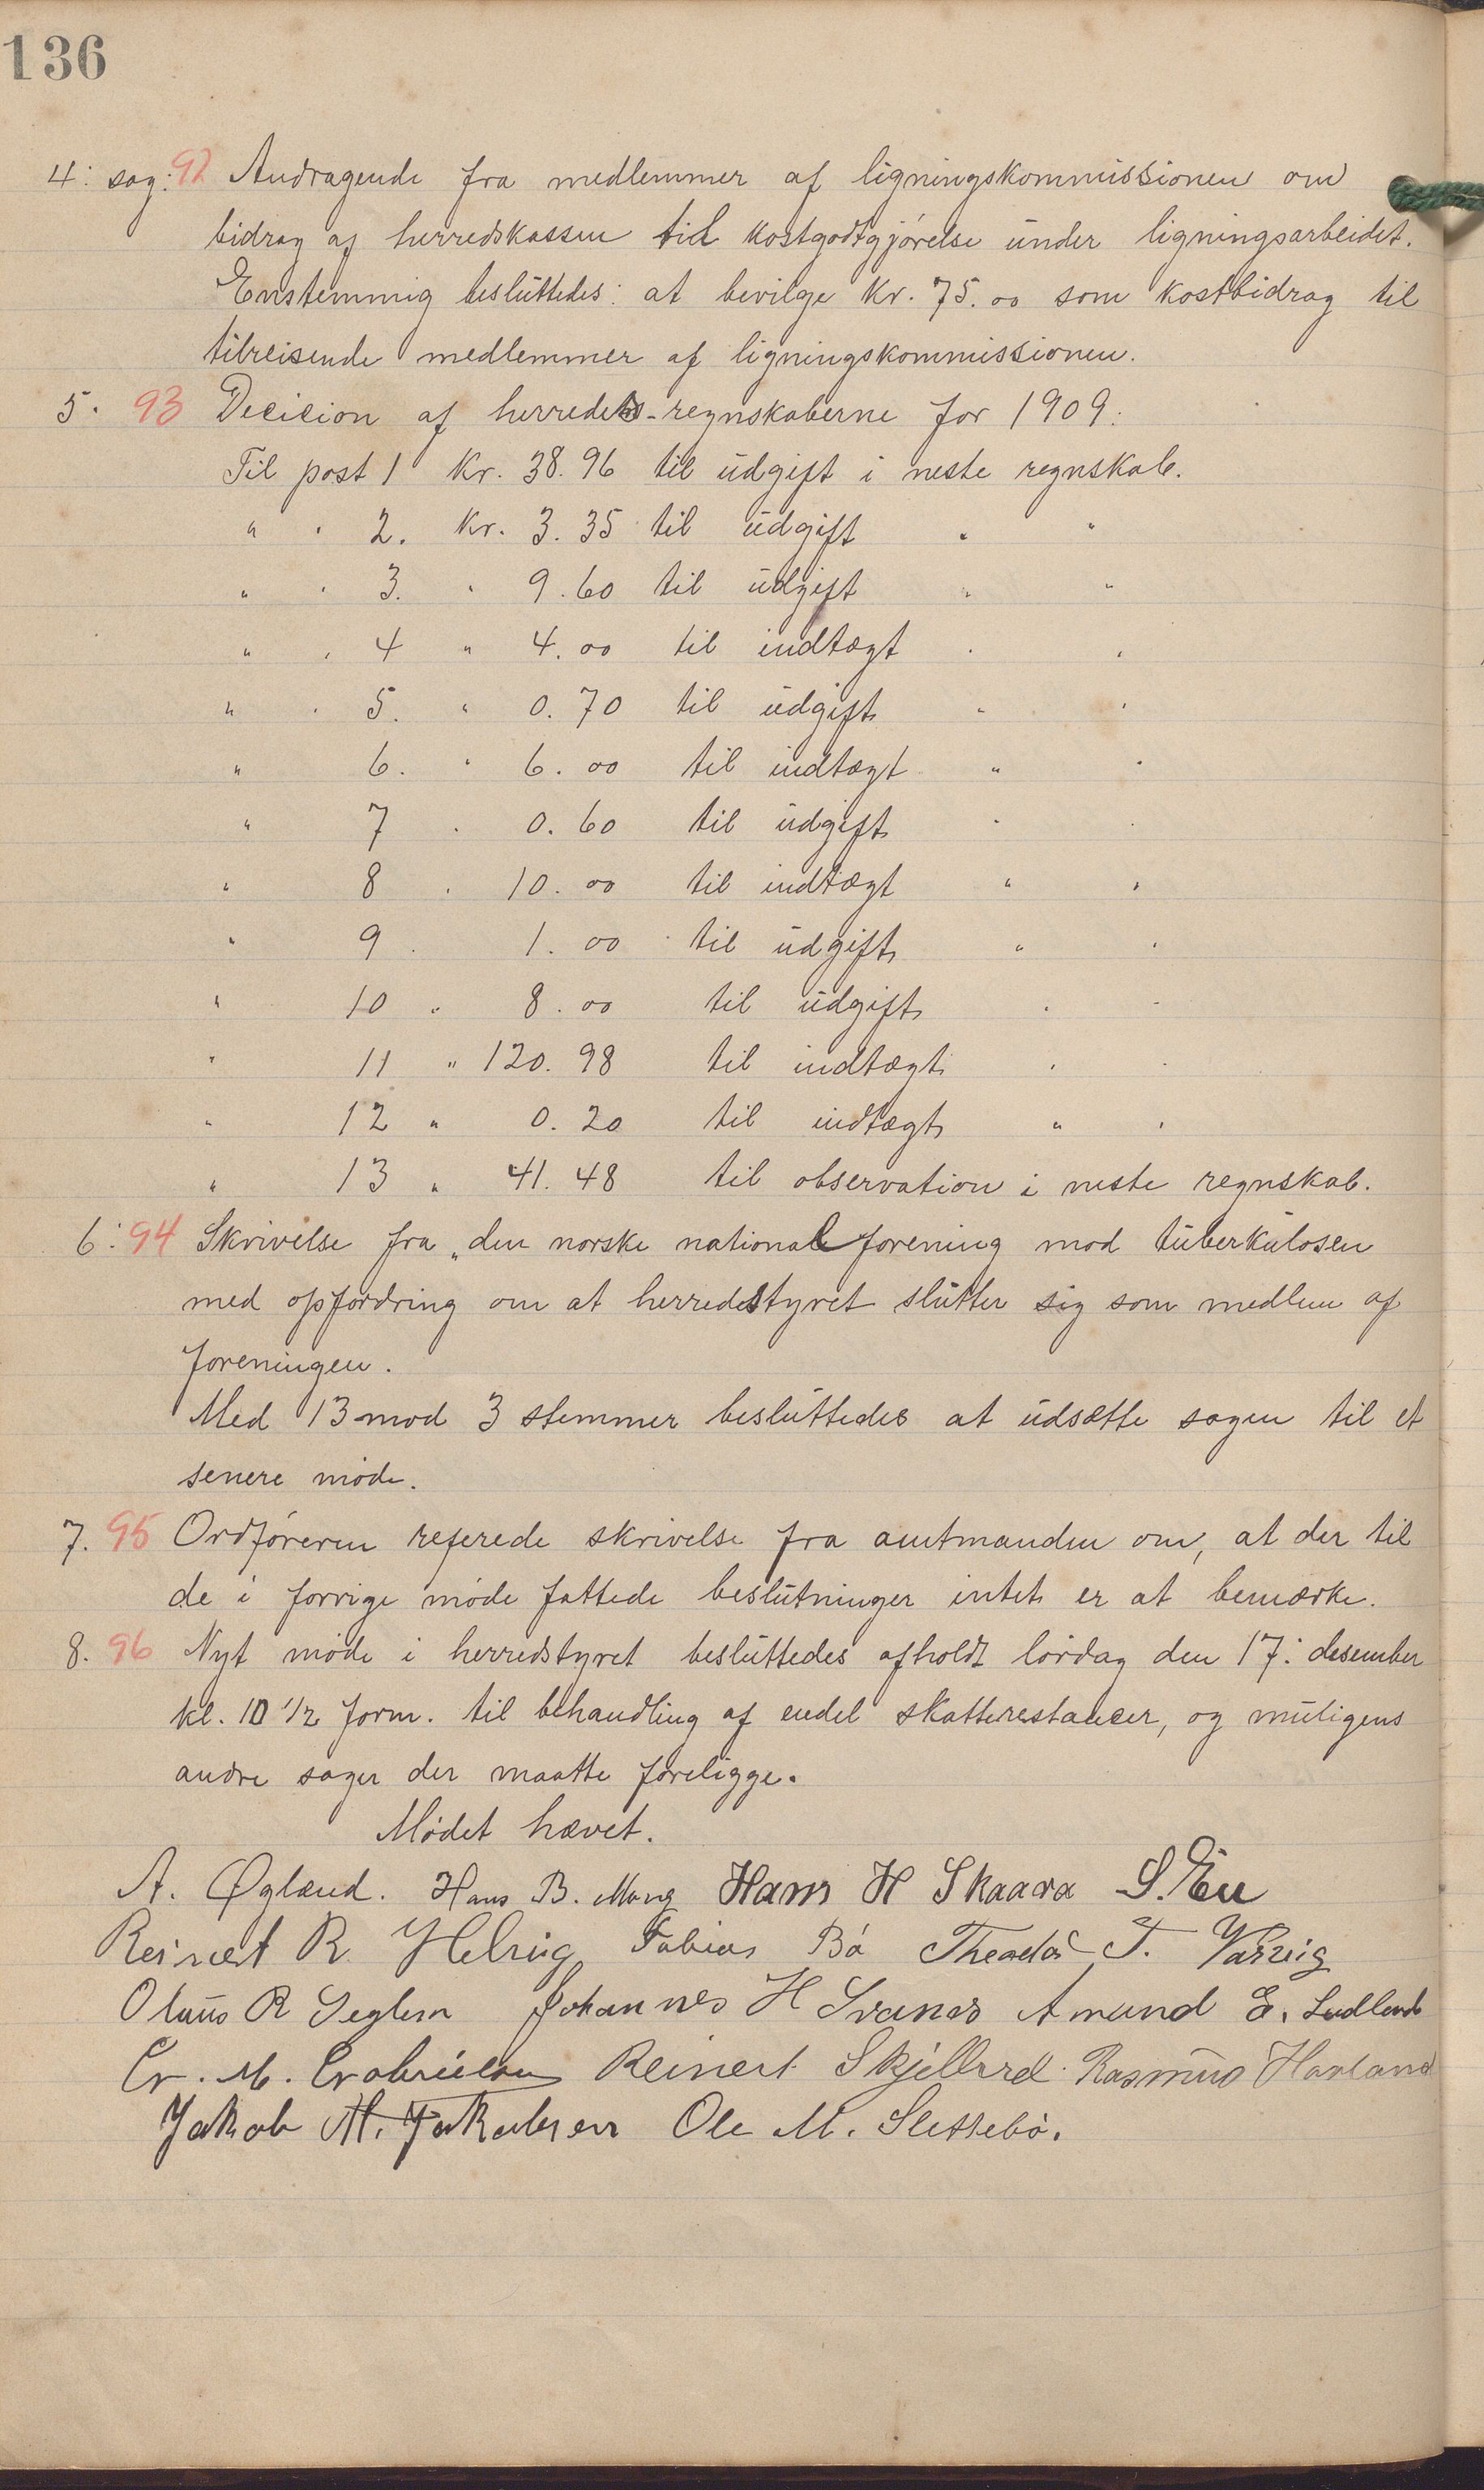 136
4: sag: 92 Andragende fra medlemmer af ligningskommissionen om
bidrag af herredskassen til kostgodtgjørelse under ligningsarbeidet.
Enstemmig besluttedes: at bevilge Kr. 75.00 som kostbidrag til
tilreisende medlemmer af ligningskommissionen.
5. 93 Decicion af herreds-regnskaberne for 1909:
Til post 1 Kr. 38.96 til udgift i neste regnskab.
" " 2. Kr. 3.35 til udgift " "
" " 3. " 9.60 til udgift " "
" " 4 " 4.00 til indtægt " "
" " 5. " 0.70 til udgift " "
" 6. " 6.00 til indtægt " "
" 7 " 0.60 til udgift " "
" 8 " 10.00 til indtægt " "
" 9 " 1.00 til udgift " "
" 10 " 8.00 til udgift " "
" 11 " 120.98 til indtægt " "
" 12 " 0.20 til indtægt " "
" 13 " 41.48 til observation i neste regnskab.
6: 94 Skrivelse fra „den norske nationalforening mod tuberkulosen
med opfordring om at herredstyret slutter sig som medlem af
foreningen.
Med 13 mod 3 stemmer besluttedes at udsætte sagen til et
senere møde.
7. 95 Ordføreren referede skrivelse fra amtmanden om, at der til
de i forrige møde fattede beslutninger intet er at bemærke.
8. 96 Nyt møde i herredstyret besluttedes afholdt lørdag den 17: desember
kl. 10 1/2 form. til behandling af endel skatterestancer, og muligens
andre sager der maatte foreligge.
Mødet hævet.
A. Øglænd. Hans B. Mong Hans H Skaara S. Eie
Reinert R. Helvig Tobias Bø Theodor T. Varvig
Olaus R Seglem Johannes H Svanes Amund E. Ludlend
G. M. Gabrielsen Reinert Skjelbred Rasmus Havland
Jakob M. Jakobsen Ole M. Slettebø.